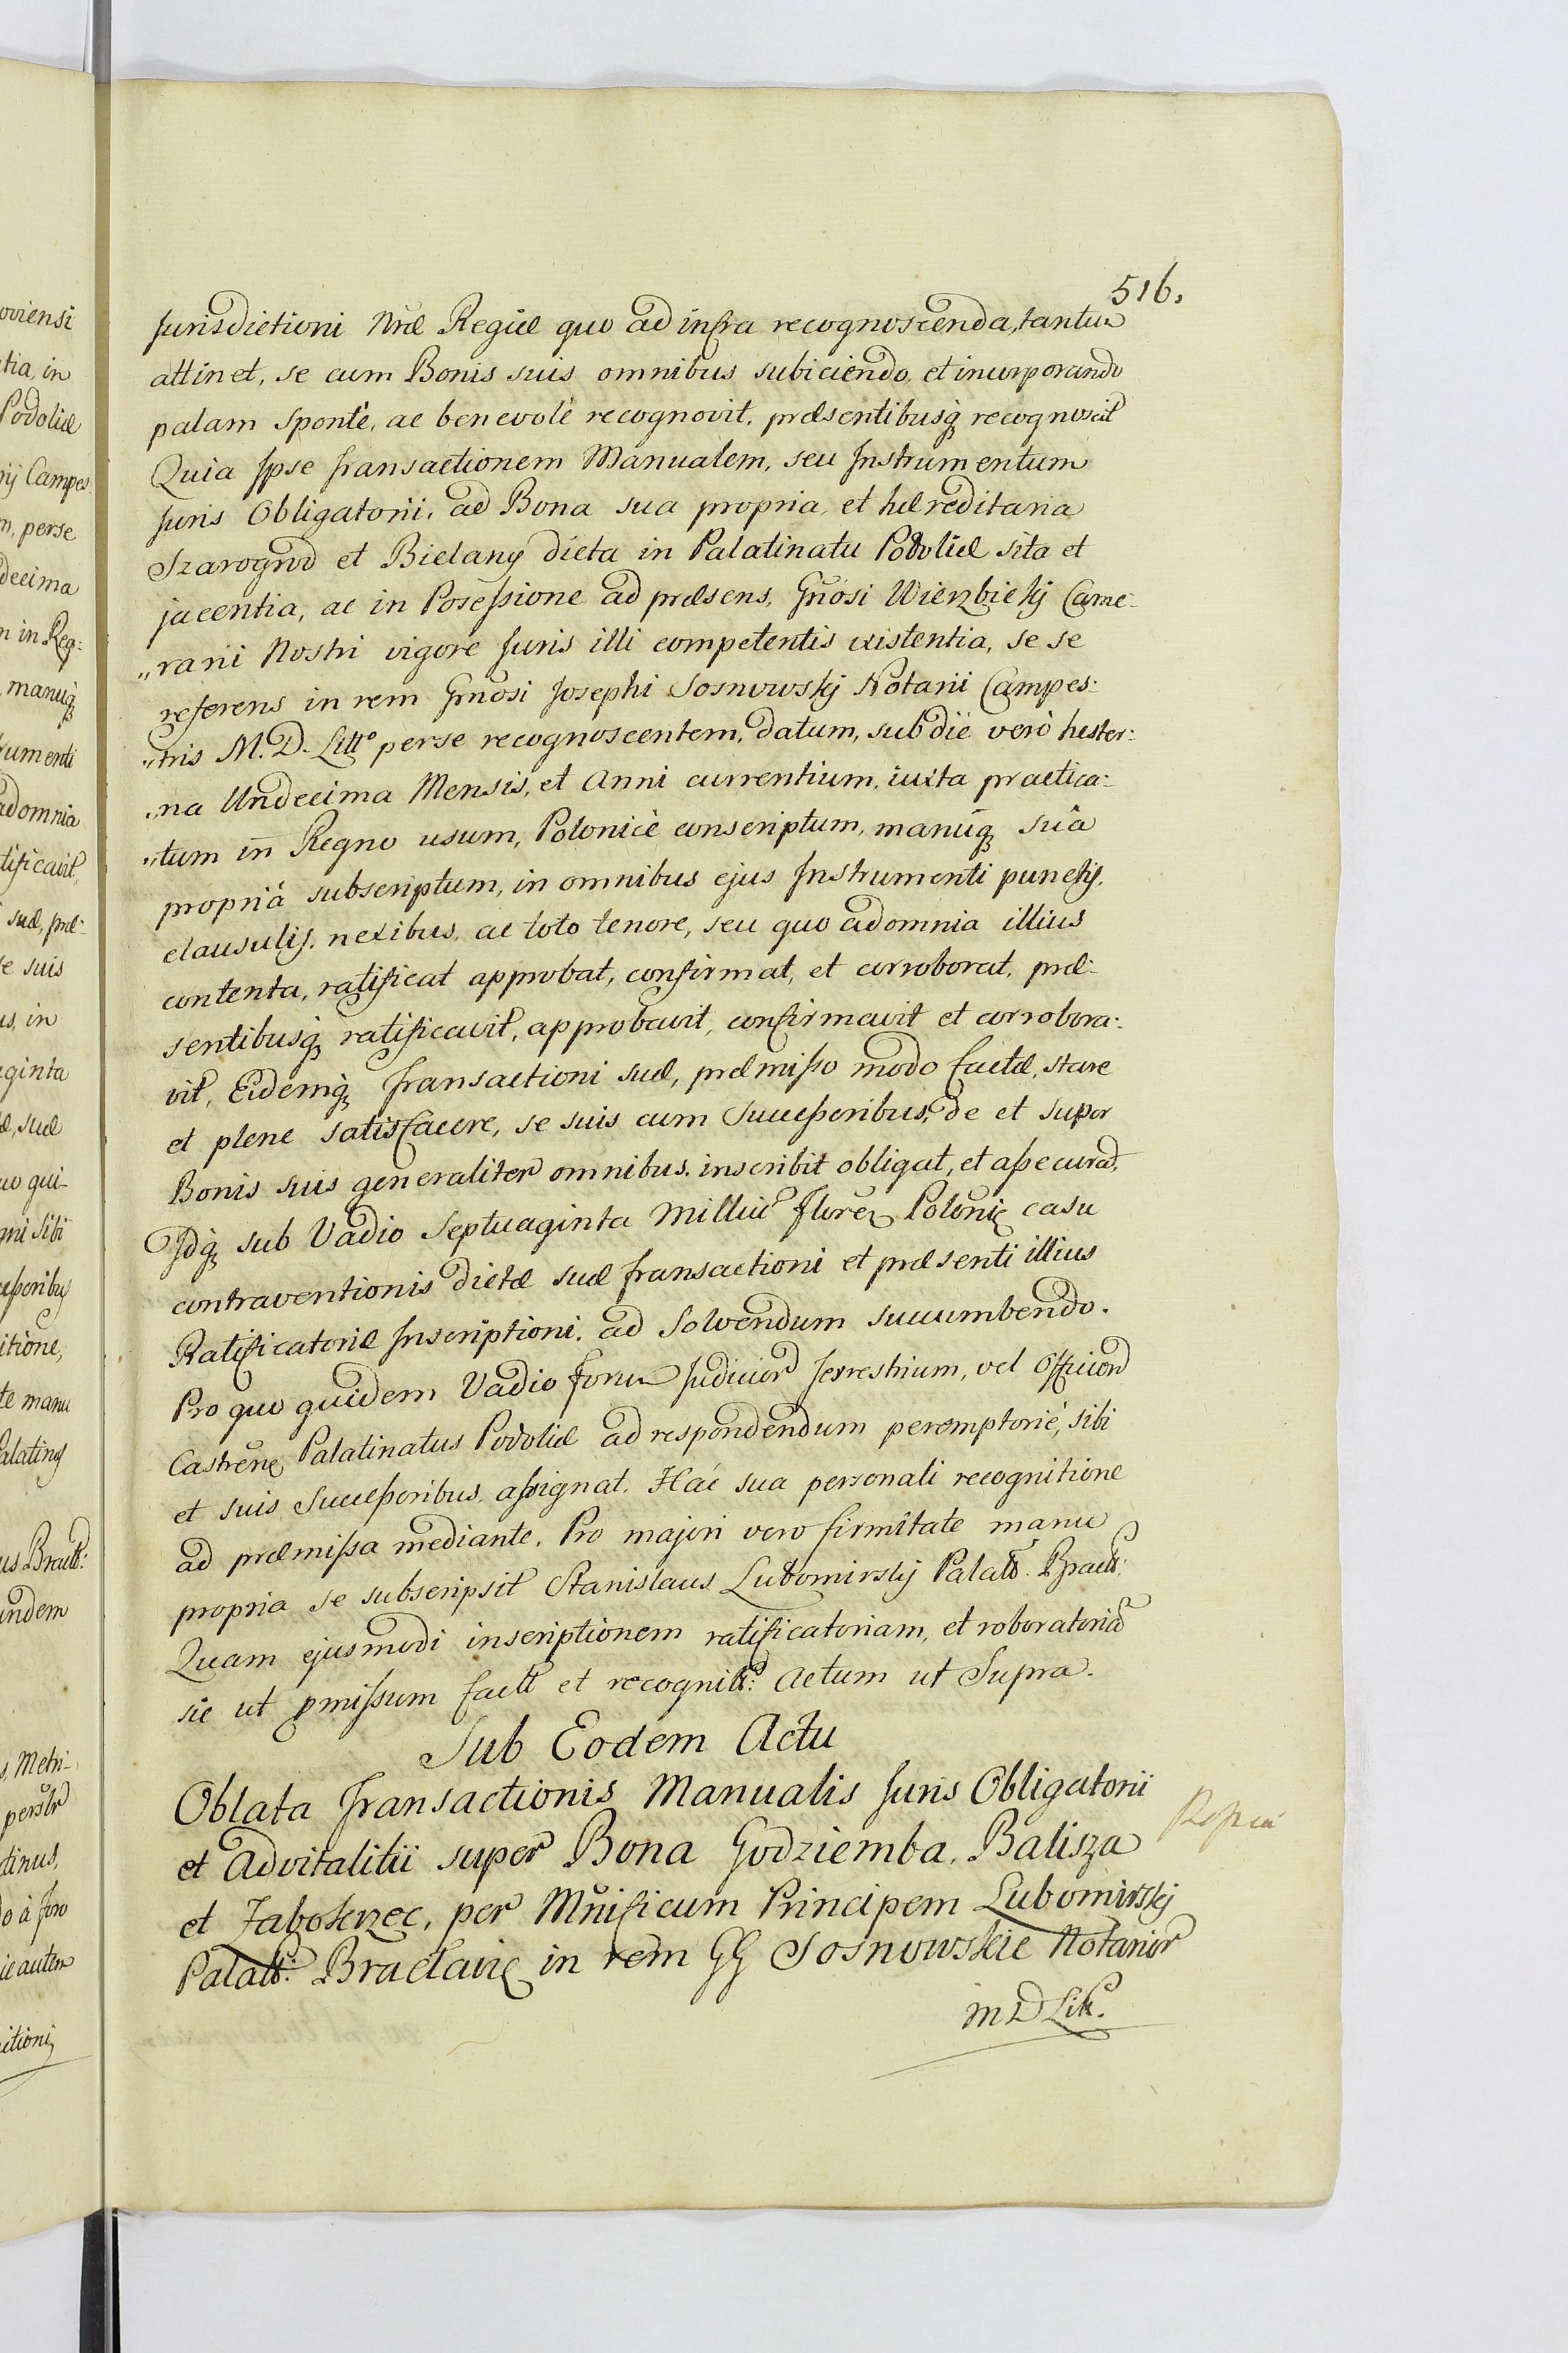 516.
Jurisdictioni Nræ Regiæ quo ad infra recognoscenda, tantum
attinet, se cum Bonis suis omnibus subiciendo, et incorporando
palam sponte, ac benevole recognovit, præsentibusq recognoscit
Quia Ipse Transactionem Manualem, seu Instrumentum
Juris Obligatorii, ad Bona sua propria, et hæreditaria
Szarogrod et Bielany dicta in Palatinatu Podoliæ sita et
jacentia, ac in Poseßione ad præsens, Gnosi Wierzbicky Came-
„rarii Nostri vigore Juris illi competentis existentia, se se
referens in rem Gnosi Josephi Sosnowsky Notarii Campes:
„tris M. D. Litt° perse recognoscentem, datum, sub die verò hester:
„na Undecima Mensis, et Anni currentium, iuxta practica:
„tum in Regno usum, Polonicè conscriptum, manuq suâ
propriâ subscriptum, in omnibus ejus Instrumenti punctis,
clausulis, nexibus, ac toto tenore, seu quo ad omnia illius
contenta, ratificat approbat, confirmat, et corroborat, præ-
sentibusq ratificavit, approbavit, confirmavit et corrobora:
vit, Eidemq Transactioni suæ, præmißo modo factæ, stare
et plene satisfacere, se suis cum Succeßoribus, de et super
Bonis suis generaliter omnibus. inscribit obligat, et aßecurat,
Idq sub Vadio Septuaginta Milliu Floren Polonic casu
contraventionis dictæ suæ Transactioni et præsenti illius
Ratificatoriæ Inscriptioni, ad Solvendum succumbendo.
Pro quo quidem Vadio Forum Judicior Terrestrium, vel Officior
Castren Palatinatus Podoliæ ad respondendum peremptoriè, sibi
et suis Succeßoribus, aßignat. Hac sua personali recognitione
ad præmißa mediante. Pro majori vero firmitate manu
propria se subscripsit Stanislaus Lubomirsky Palatt. Bractt:
Quam ejusmodi inscriptionem ratificatoriam, et roboratoria
sic ut pmißum factt et recognitt: Actum ut Supra.
Sub Eodem Actu
Oblata Transactionis Manualis Juris Obligatorii
et Advitalitii super Bona Godziemba, Balisza
et Zabokrzec, per Mnificum Principem Lubomirsky
Palatt: Braclavie in rem GG Sosnowskie Notarior
M D Litt.